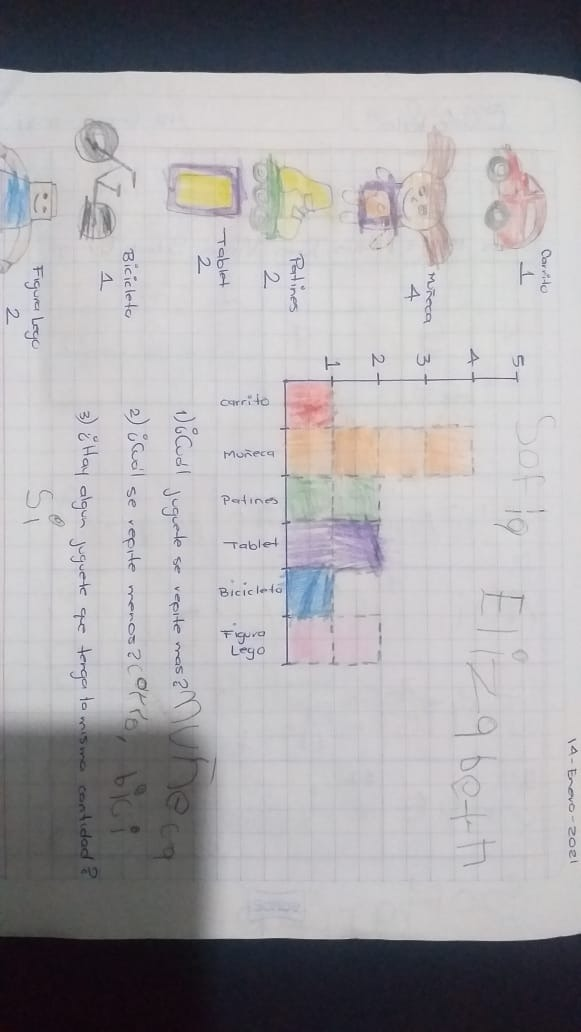 14-Enero-2021
Sofia Elizabeth
Carrito
1
Muñeca
4
Patines
2
Tablet
2
Bicicleta
1
Figura Lego
2
5
4
3
2
1
Carrito
Muñeca
Patines
Tablet
Bicicleta
Figura
Lego
1) ¿Cuál juguete se repite mas? Muñeca
2) ¿Cuál se repite menos? Carro, bici
3) ¿Hay algun juguete que tenga la misma cantidad?
Si